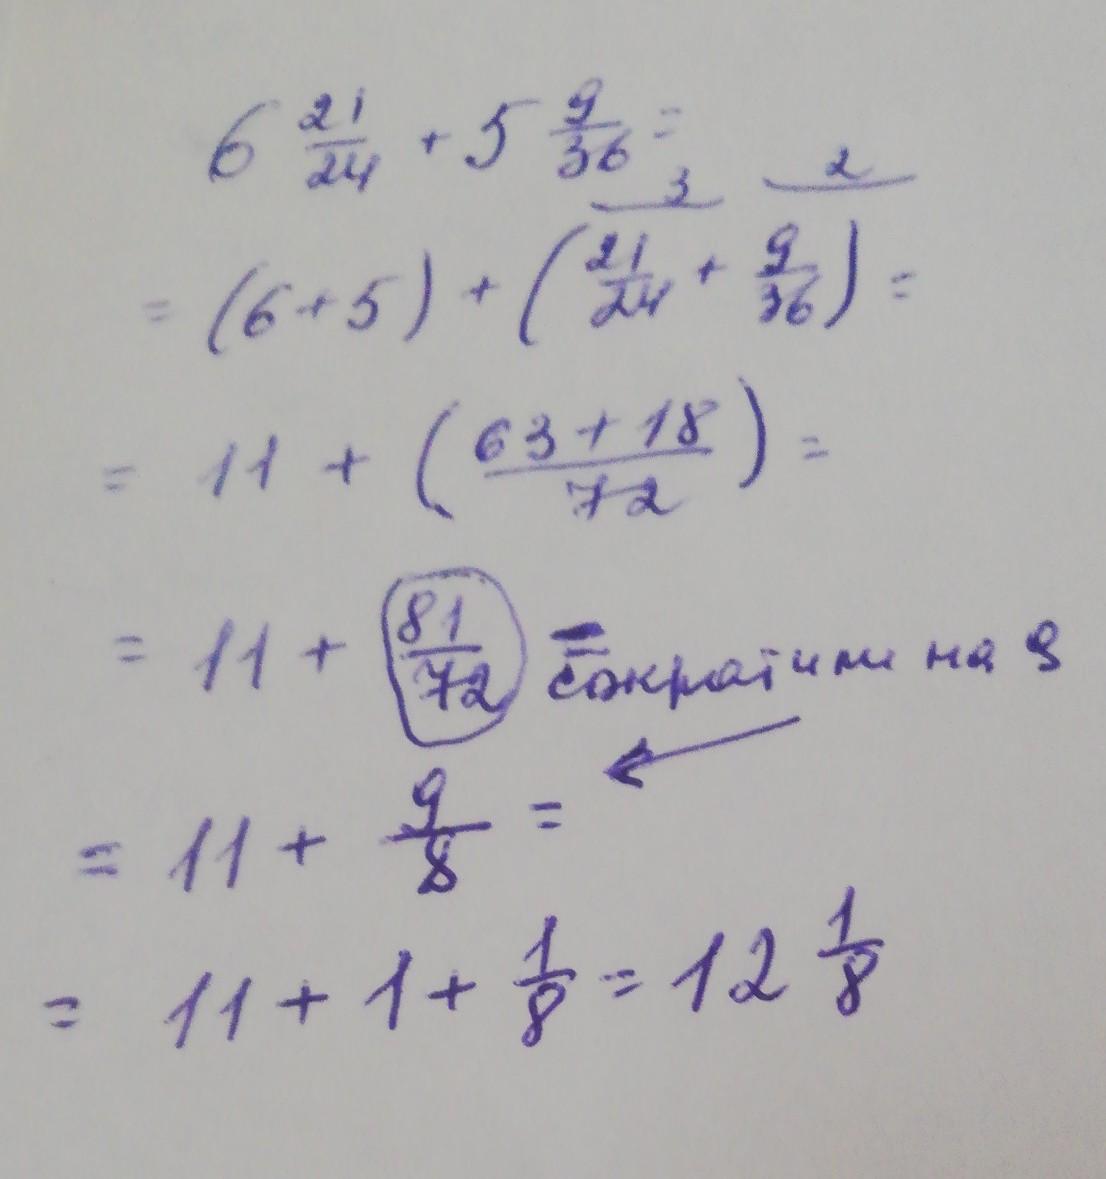 6 21/24 + 5 9/36 =
3 2
= (6+5) + (21/24 + 9/36) =
= 11 + (63+18/72) =
= 11 + 81/72 = сократили на 9
= 11 + 9/8 =
= 11 + 1 + 1/8 = 12 1/8